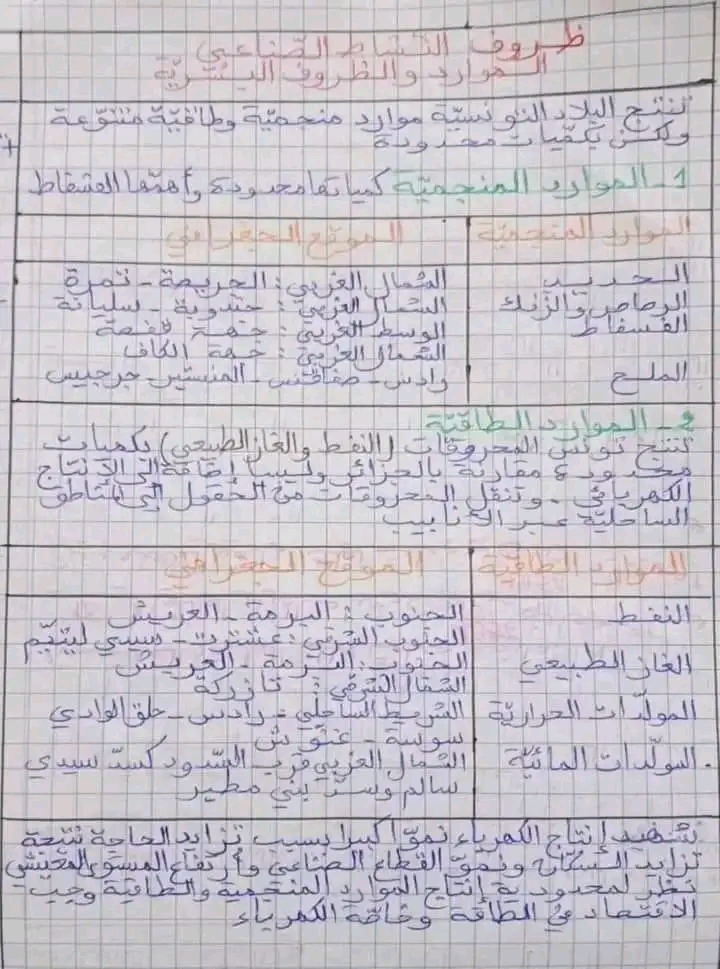 ظروف النشاط الصناعي
الموارد والظروف البشريّة
تنتج البلاد التونسيّة موارد منجميّة وطاقيّة متنوّعة
ولكن بكمّيات محدودة
1 - الموارد المنجميّة كمياتها محدودة وأهمّها الفسفاط
الموارد المنجميّة الموقع الجغرافي
الحديد الشمال الغربي : الجريصة - تمرة
الرصاص والزنك الشمال الغربي : جندوبة - سليانة
الفسفاط الوسط الغربي : جهة قفصة
الشمال الغربي : جهة الكاف
الملح رادس - صفاقس - المنستير جرجيس
2 - الموارد الطاقيّة
تنتج تونس المحروقات (النفط والغاز الطبيعي) بكميات
محدودة مقارنة بالجزائر وليبيا إضافة إلى الانتاج
الكهربائي - وتنقل المحروقات من الحقول إلى المناطق
الساحليّة عبر الأنابيب
الموارد الطاقيّة الموقع الجغرافي
النفط الجنوب : البرمة - العريش
الجنوب الشرقي : عشترت - سيدي ليتيّم
الغاز الطبيعي الجنوب : البرمة - العريش
الشمال الشرقي : تازركة
المولّدات الحراريّة الشريط الساحلي : رادس - حلق الوادي
سوسة - غنّوش
المولّدات المائيّة الشمال الغربي قرب السّدود كسدّ سيدي
سالم وسدّ بني مطير
تشهد إنتاج الكهرباء نموّا كبيرا بسبب تزايد الحاجة نتيجة
تزايد السكّان ونموّ القطاع الصناعي وارتفاع المستوى المعيشي
نظرا لمحدودية إنتاج الموارد المنجمية والطاقية وجب
الاقتصاد في الطاقة وخاصّة الكهرباء